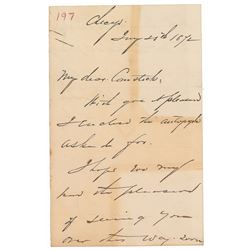 197
Chcgo
July 25th 1872
My dear Comstock,
With great pleasure
I enclose the autograph
asked for.
I hope we may
have the pleasure
of seeing you
over this way soon